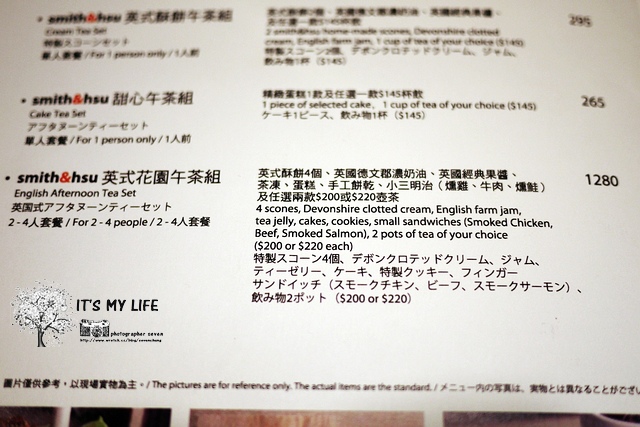 • smith&hsu 英式酥餅午茶組
Cream Tea Set
特製スコーンセット
單人套餐 / For 1 person only / 1人前
2 smith&hsu home-made scones, Devonshire clotted
cream, English farm jam, 1 cup of tea of your choice ($145)
特製スコーン2個、デボンクロテッドクリーム、ジャム、
飲み物1杯（$145）
295
• smith&hsu 甜心午茶組
Cake Tea Set
アフタヌーンティーセット
單人套餐 / For 1 person only / 1人前
精緻蛋糕1款及任選一款$145杯飲
1 piece of selected cake, 1 cup of tea of your choice ($145)
ケーキ1ピース、飲み物1杯（$145）
265
• smith&hsu 英式花園午茶組
English Afternoon Tea Set
英国式アフタヌーンティーセット
2 - 4人套餐 / For 2 - 4 people / 2 - 4人套餐
英式酥餅4個、英國德文郡濃奶油、英國經典果醬、
茶凍、蛋糕、手工餅乾、小三明治（燻雞、牛肉、燻鮭）
及任選兩款$200或$220壺茶
4 scones, Devonshire clotted cream, English farm jam,
tea jelly, cakes, cookies, small sandwiches (Smoked Chicken,
Beef, Smoked Salmon), 2 pots of tea of your choice
($200 or $220 each)
特製スコーン4個、デボンクロテッドクリーム、ジャム、
ティーゼリー、ケーキ、特製クッキー、フィンガー
サンドイッチ（スモークチキン、ビーフ、スモークサーモン）、
飲み物2ポット（$200 or $220）
1280
IT'S MY LIFE
photographer seven
圖片僅供參考，以現場實物為主。/ The pictures are for reference only. The actual items are the standard. / メニュー内の写真は、実物とは異なることがござい